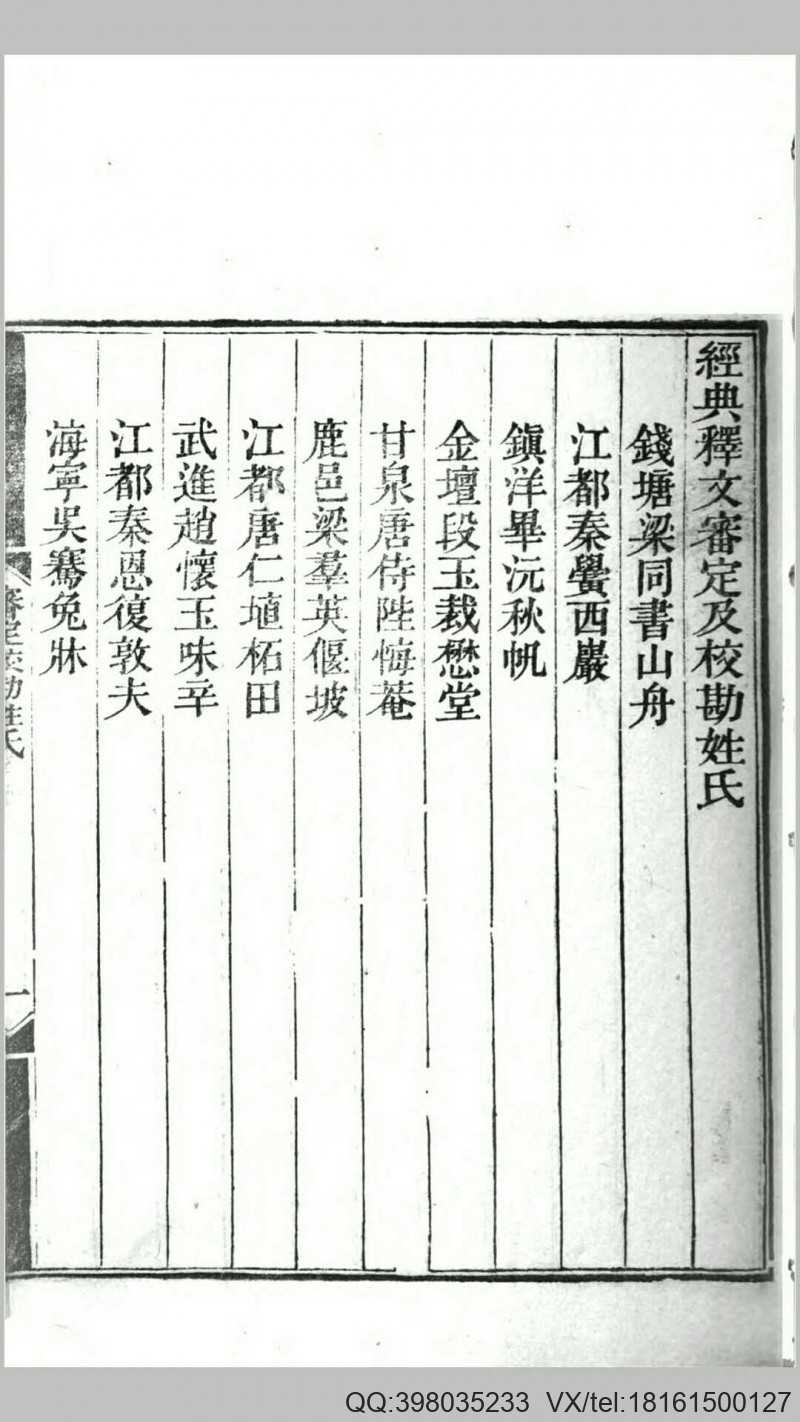 經典釋文審定及校勘姓氏
錢塘梁同書山舟
江都秦黌西巖
鎮洋畢沅秋帆
金壇段玉裁懋堂
甘泉唐侍陛悔菴
鹿邑梁羣英偃坡
江都唐仁埴柘田
武進趙懷玉味辛
江都秦恩復敦夫
海寧吳騫兔牀
審定校勘姓氏
一
QQ:398035233 VX/tel:18161500127